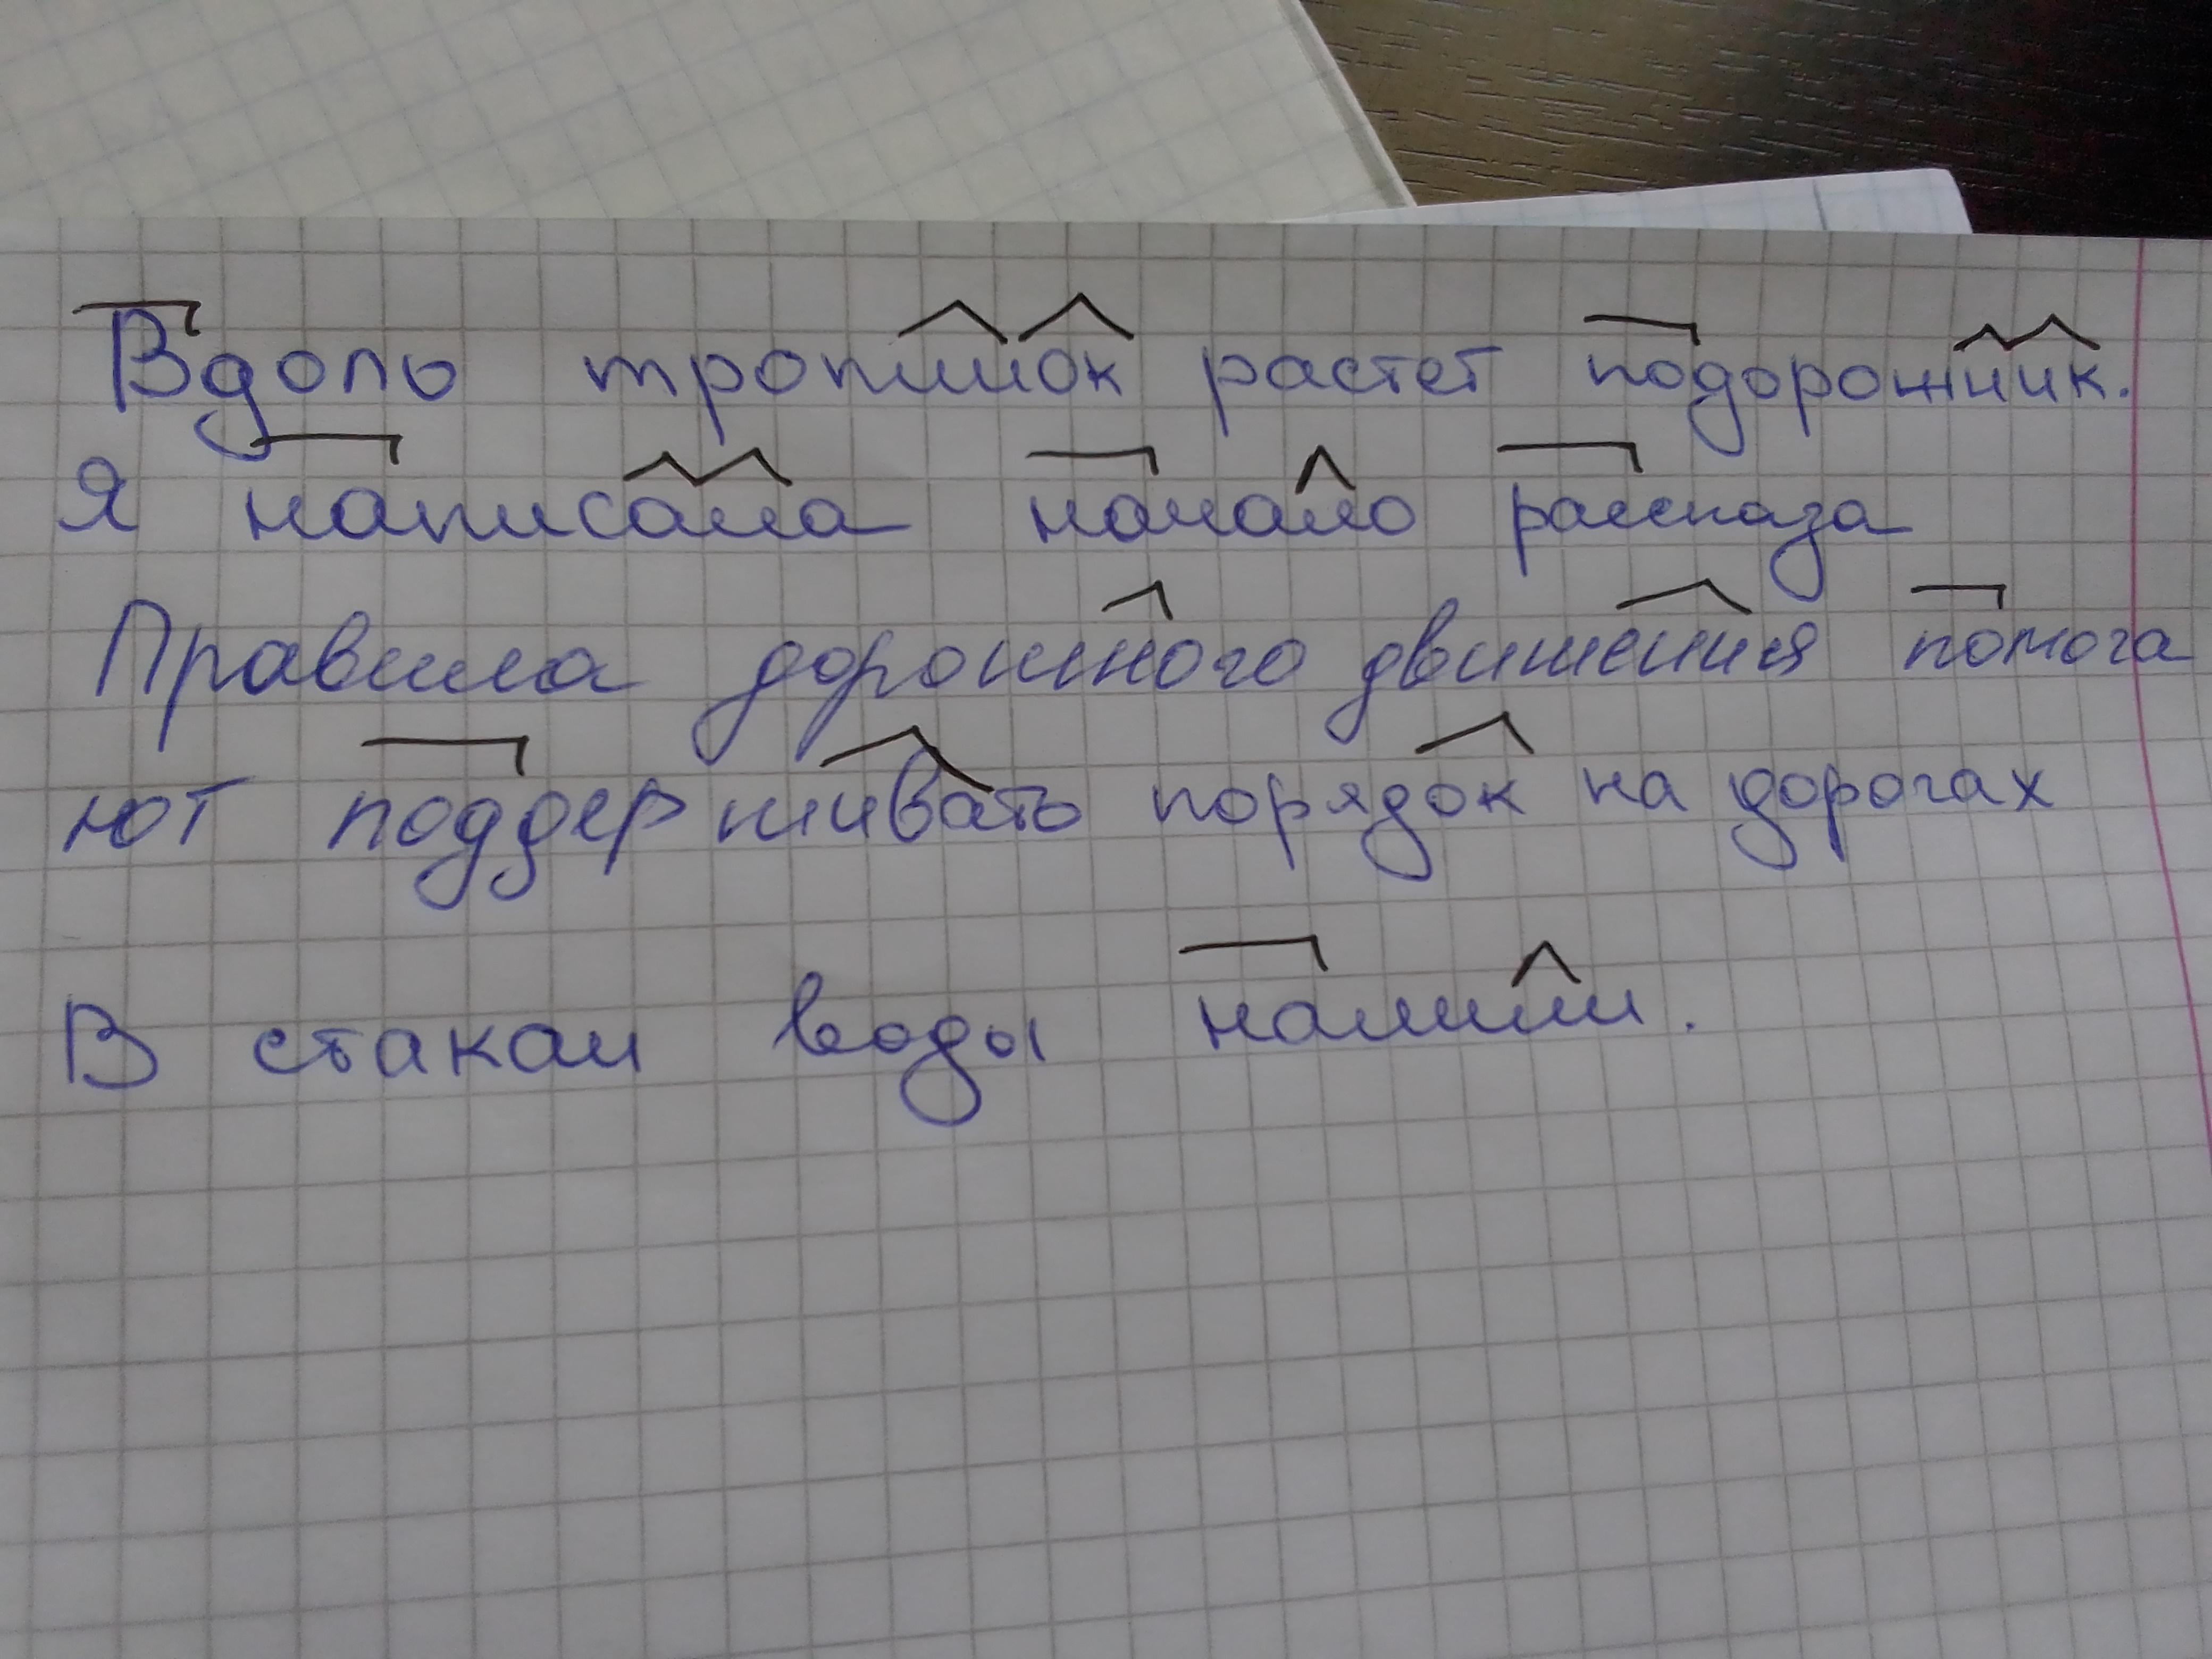 Вдоль тропинок растет подорожник.
Я написала начало рассказа
Правила дорожного движения помога
ют поддерживать порядок на дорогах
В стакан воды налили.